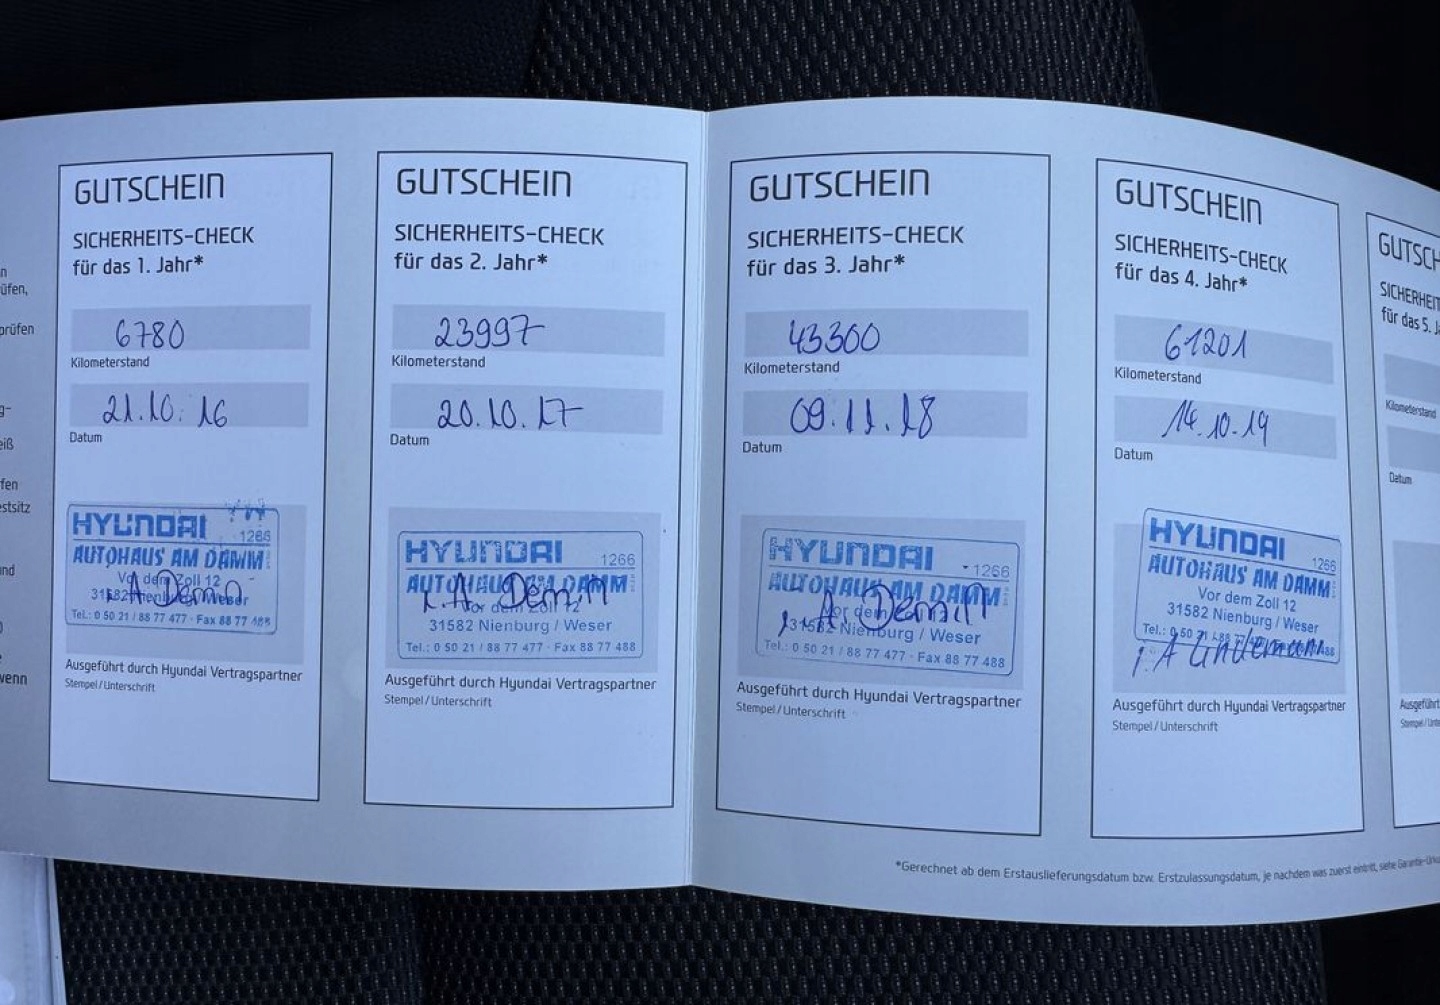 n
üfen,
prüfen
g-
eiß
fen
estsitz
nd
wenn
GUTSCHEIN
SICHERHEITS-CHECK
für das 1. Jahr*
6780
Kilometerstand
21.10.16
Datum
HYUNDAI
1266
AUTOHAUS AM DAMM
Vor dem Zoll 12
31582 Nienburg / Weser
Tel.: 0 50 21 / 88 77 477 · Fax 88 77 488
Ausgeführt durch Hyundai Vertragspartner
Stempel/Unterschrift
GUTSCHEIN
SICHERHEITS-CHECK
für das 2. Jahr*
23997
Kilometerstand
20.10.17
Datum
HYUNDAI
1266
AUTOHAUS AM DAMM
Vor dem Zoll 12
31582 Nienburg / Weser
Tel.: 0 50 21 / 88 77 477 · Fax 88 77 488
Ausgeführt durch Hyundai Vertragspartner
Stempel/Unterschrift
GUTSCHEIN
SICHERHEITS-CHECK
für das 3. Jahr*
43300
Kilometerstand
09.11.18
Datum
HYUNDAI
1266
AUTOHAUS AM DAMM
Vor dem
31582 Nienburg / Weser
Tel.: 0 50 21 / 88 77 477 · Fax 88 77 488
Ausgeführt durch Hyundai Vertragspartner
Stempel/Unterschrift
GUTSCHEIN
SICHERHEITS-CHECK
für das 4. Jahr*
61201
Kilometerstand
14.10.19
Datum
HYUNDAI
1266
AUTOHAUS AM DAMM
Vor dem Zoll 12
31582 Nienburg / Weser
Tel.: 0 50 21 / 88 77
i. A
Ausgeführt durch Hyundai Vertragspartner
Stempel/Unterschrift
GUTSCH
SICHERHEIT
für das 5. J
Kilometerstand
Datum
Ausgeführt
*Gerechnet ab dem Erstauslieferungsdatum bzw. Erstzulassungsdatum, je nachdem was zuerst eintritt, siehe Garantie-Urku